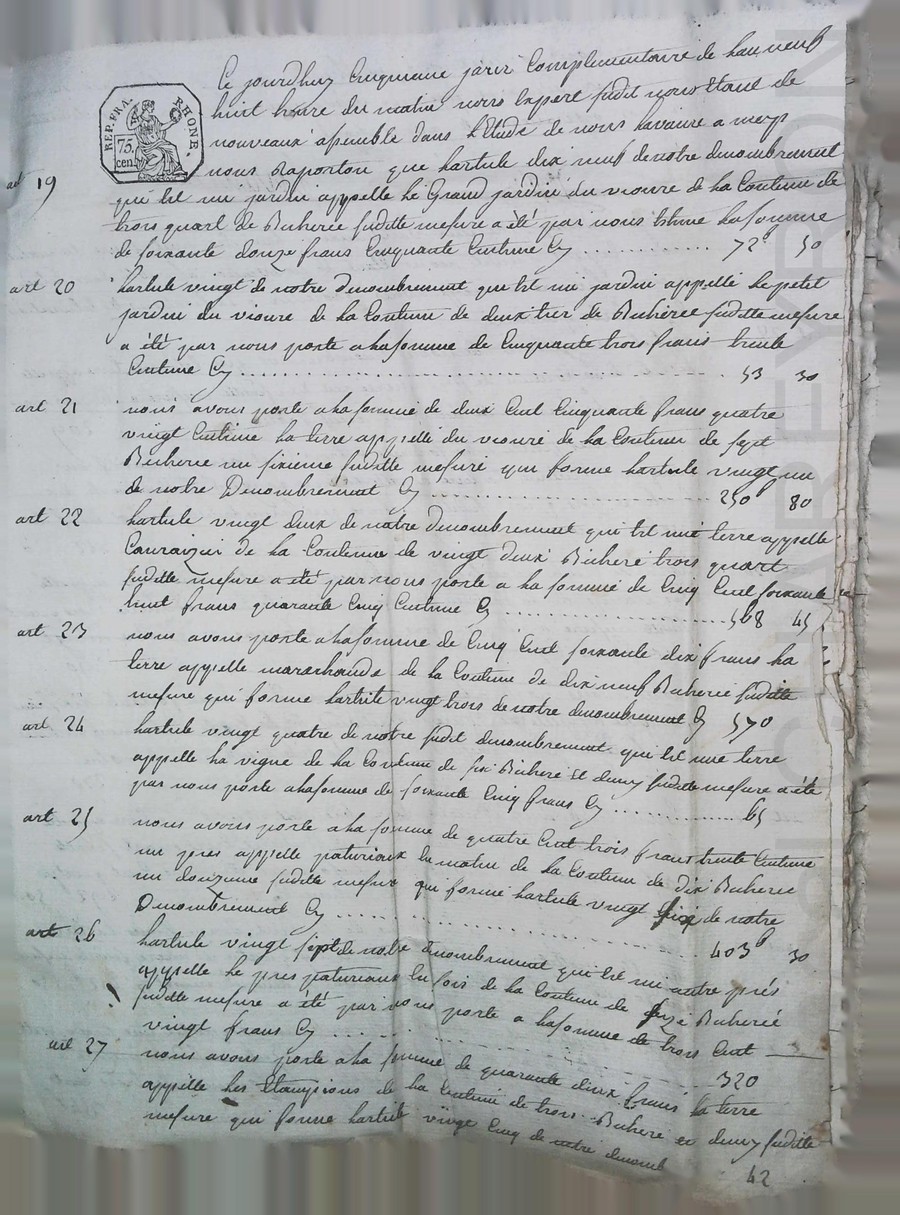 REP. FRA. RHONE.
75 cen.
Ce jourdhuy Cinquieme jour Complementaire de han neuf
huit heure du matin nous Expert sudit nous etant de
nouveaux assemble dans l'Etude de nous havaure a
art 19 nous Raporton que harticle dix neuf de notre denombrement
qui Est un jardin appelle he Grand jardin du vioure de ha Contenue de
trois quart de Bicherée suditte mesure a été par nous Estime ha somme
de soixante douze frans Cinquante Centime Cy ........... 72 50
art 20 harticle vingt de notre denombrement qui Est un jardin appelle he petit
jardin du vioure de ha Contenue de deux tier de Bicherée suditte mesure
a été par nous porté a ha somme de Cinquante trois frans trente
Centime Cy ........... 53 30
art 21 nous avons porté a ha somme de deux Cent Cinquante frans quatre
vingt Centime ha terre appellé du viouré de ha Contenue de sept
Bicherée un sixieme suditte mesure qui forme harticle vingt un
de notre Denombrement Cy ........... 250 80
art 22 harticle vingt deux de notre denombrement qui Est une terre appelle
de ha Contenue de vingt deux Bicheré trois quart
suditte mesure a été par nous porté a ha somme de Cinq Cent soixante
huit frans quarante Cinq Centime Cy ........... 568 45
art 23 nous avons porté a ha somme de Cinq Cent soixante dix frans ha
terre appelle de ha Contenue de dix neuf Bicherée suditte
mesure qui forme harticle vingt trois de notre denombrement Cy 570
art 24 harticle vingt quatre de notre sudit denombrement qui Est une terre
appelle ha vigne de ha Contenue de six Bicheré Et demy suditte mesure a été
par nous porté a ha somme de soixante Cinq frans Cy ........... 65
art 25 nous avons porté a ha somme de quatre Cent trois frans trente Centime
un pres appelle paturiaux de ha Contenue de dix Bicherée
un douzieme suditte mesure qui forme harticle vingt six de notre
Denombrement Cy ........... 403 30
art 26 harticle vingt sept de notre denombrement qui Est un autre prés
appelle he pres paturiaux de ha Contenue de Bicherée
suditte mesure a été par nous porté a ha somme de trois Cent
vingt frans Cy ........... 320
art 27 nous avons porté a ha somme de quarante deux frans ha terre
appelle hes Etampions de ha Contenue de trois Bicheré et demy suditte
mesure qui forme harticle vingt Cinq de notre denomb
42